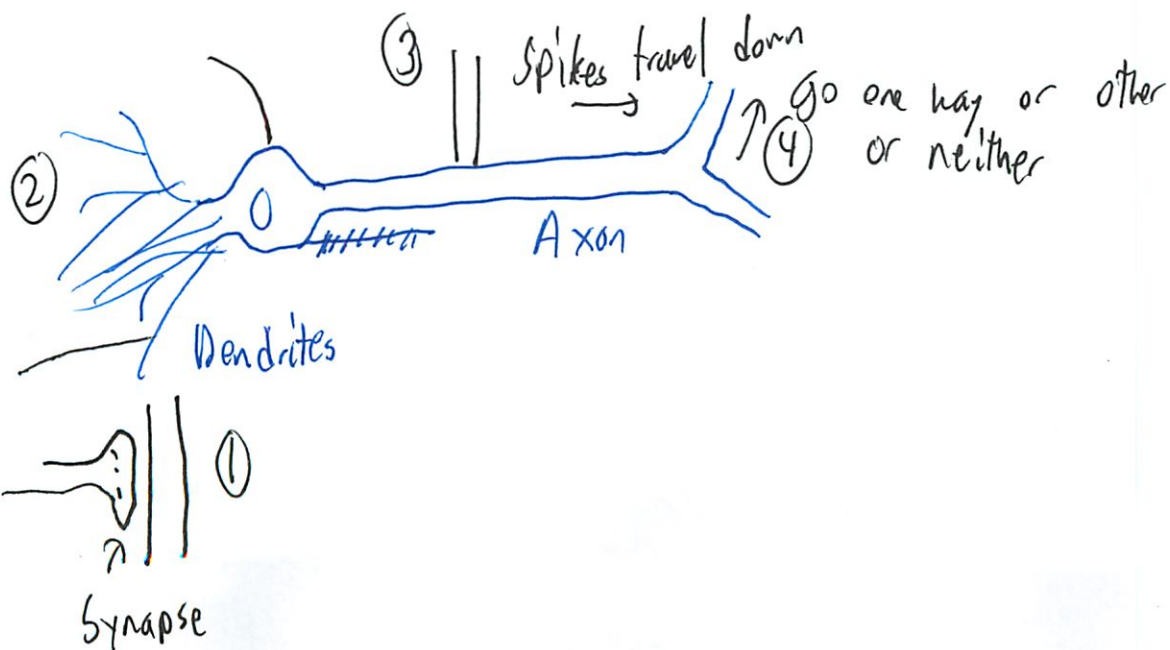 ③ Spikes travel down
→
Go one way or other
④ or neither
②
Axon
Dendrites
①
Synapse